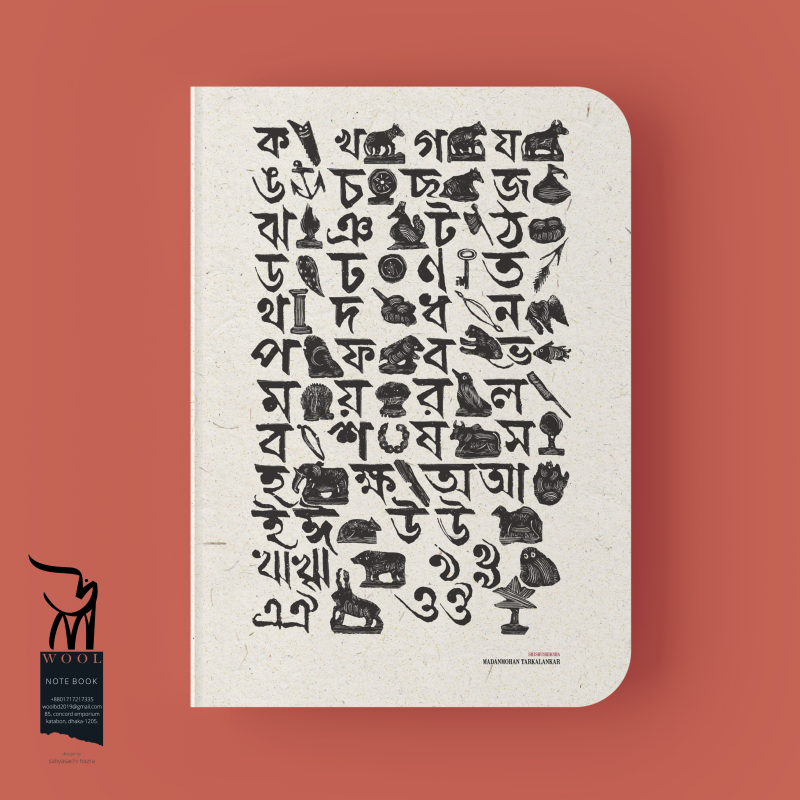 ক খ গ ঘ
ঙ চ ছ জ
ঝ ঞ ট ঠ
ড ঢ ণ ত
থ দ ধ ন
প ফ ব ভ
ম য় র ল
ব শ ষ স
হ ক্ষ অ আ
ই ঈ উ ঊ
ঋ ৠ ঌ ৡ
এ ঐ ও ঔ
SHISHUSHIKSHA
MADANMOHAN TARKALANKAR
WOOL
NOTE BOOK
+8801717217335
woolbd2019@gmail.com
85, concord emporium
katabon, dhaka-1205.
sabyasachi hazra